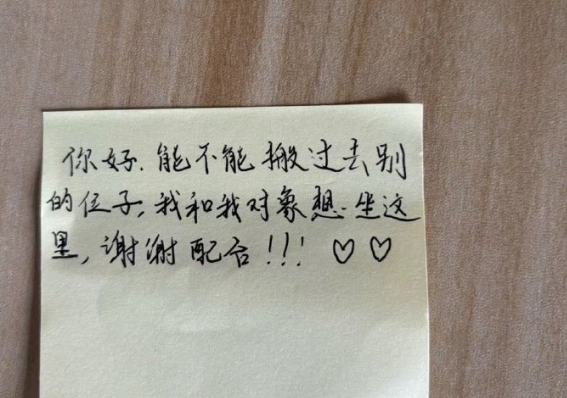 你好.能不能搬过去别
的位子,我和我对象想坐这
里,谢谢配合!!!♡♡